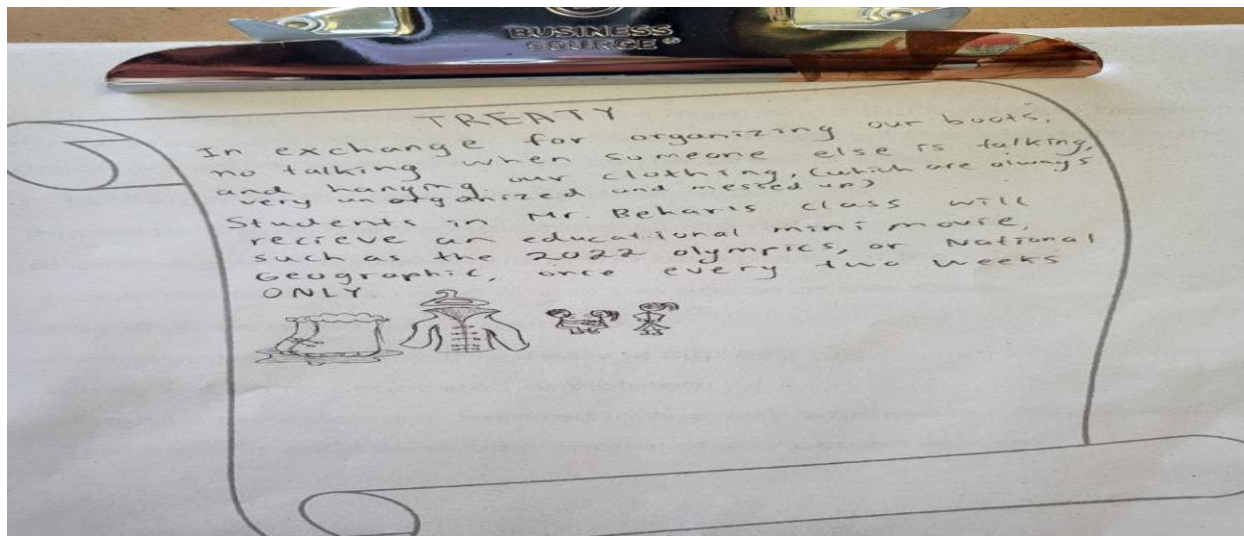 BUSINESS
SOURCE®
TREATY
In exchange for organizing our boots,
no talking when someone else is talking,
and hanging our clothing, (which are always
very unorganized and messed up)
Students in Mr. Behari's class will
recieve an educational mini movie,
such as the 2022 olympics, or National
Geographic, once every two weeks
ONLY